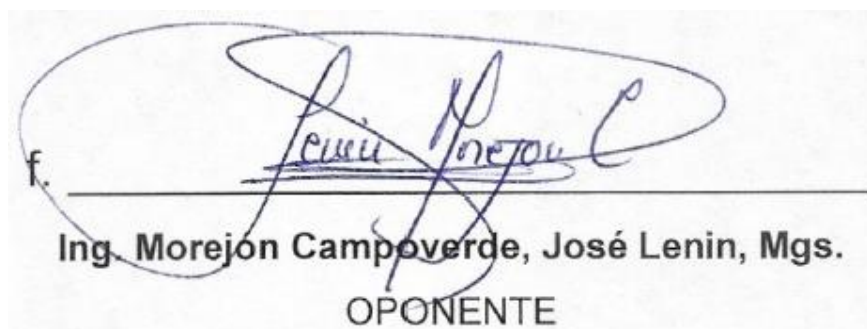 Lenin Morejon C
f.
Ing. Morejón Campoverde, José Lenin, Mgs.
OPONENTE